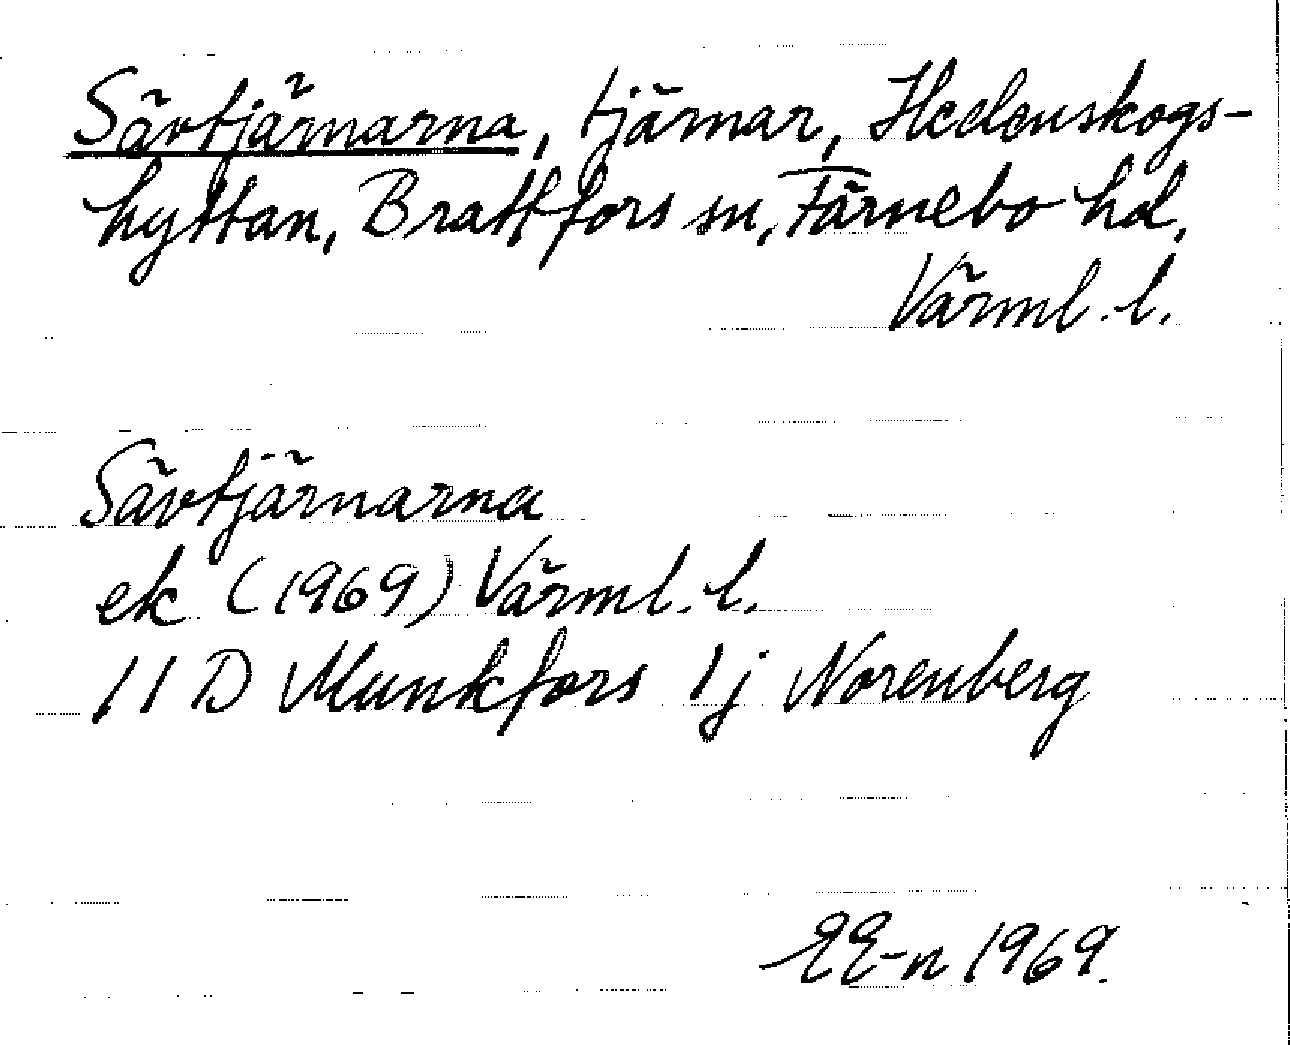 Sävtjärnarna, tjärnar, Hedenskogs-
hyttan, Brattfors sn, Färnebo hd,
Värml. l.
Sävtjärnarna
ek (1969) Värml. l.
11 D Munkfors 1j Norenberg
EE-n 1969.